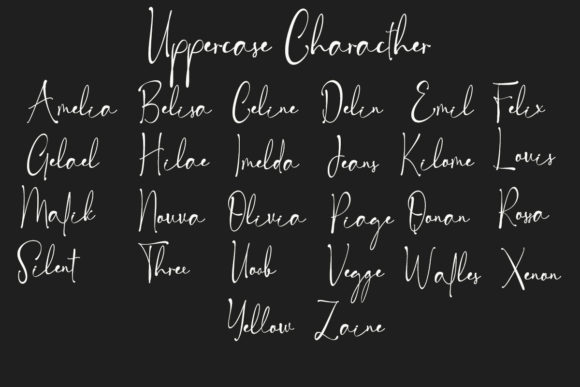 Uppercase Characther
Amelia Belisa Celine Delin Emil Felix
Gelael Hilae Imelda Jeans Kilome Louis
Malik Nouva Olivia Piage Qonan Rossa
Silent Three Uoob Vegge Wafles Xenon
Yellow Zaine